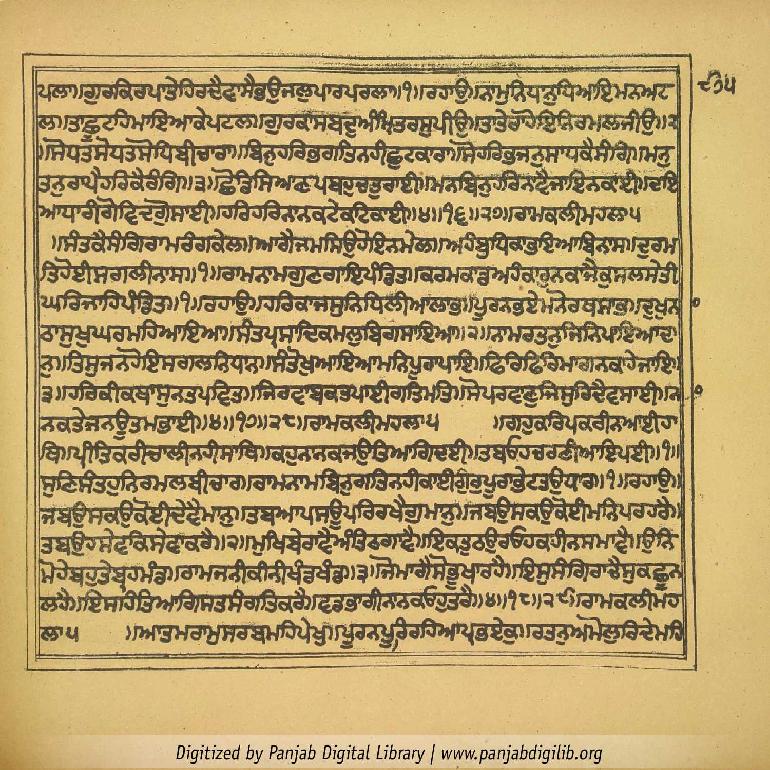 ਪਲਾ॥ਗੁਰਕਿਰਪਾਤੇਹਿਰਦੈਵਾਸੈਭਉਜਲੁਪਾਰਪਰਲਾ॥੧॥ਰਹਾਉ॥ਨਾਮੁਨਿਧਾਨੁਧਿਆਇਮਨਅਟ
ਲਾ॥ਤਾਛੂਟਹਿਮਾਇਆਕੇਪਟਲਾ॥ਗੁਰਕਾਸਬਦੁਅੰਮ੍ਰਿਤਰਸੁਪੀਉ॥ਤਾਤੇਰਾਹੋਇਨਿਰਮਲਜੀਉ॥੨
॥ਸੋਧਤਸੋਧਤਸੋਧਿਬੀਚਾਰਾ॥ਬਿਨੁਹਰਿਭਗਤਿਨਹੀਛੁਟਕਾਰਾ॥ਸੋਹਰਿਭਜਨੁਸਾਧਕੈਸੰਗਿ॥ਮਨੁ
ਤਨੁਰਾਪੈਹਰਿਕੈਰੰਗਿ॥੩॥ਛੋਡਿਸਿਆਣਪਬਹੁਚਤੁਰਾਈ॥ਮਨਬਿਨੁਹਰਿਨਾਵੈਜਾਇਨਕਾਈ॥ਦਇ
ਆਧਾਰੀਗੋਵਿਦਗੋੁਸਾਈ॥ਹਰਿਹਰਿਨਾਨਕਟੇਕਟਿਕਾਈ॥੪॥੧੬॥੨੭॥ਰਾਮਕਲੀਮਹਲਾ੫
॥ਸੰਤਕੈਸੰਗਿਰਾਮਰੰਗਕੇਲ॥ਆਗੈਜਮਸਿਉਹੋਇਨਮੇਲ॥ਅਹੰਬੁਧਿਕਾਭਇਆਬਿਨਾਸ॥ਦੁਰਮ
ਤਿਹੋਈਸਗਲੀਨਾਸ॥੧॥ਰਾਮਨਾਮਗੁਣਗਾਇਪੰਡਿਤ॥ਕਰਮਕਾਂਡਅਹੰਕਾਰੁਨਕਾਜੈਕੁਸਲਸੇਤੀ
ਘਰਿਜਾਹਿਪੰਡਿਤ॥੧॥ਰਹਾਉ॥ਹਰਿਕਾਜਸੁਨਿਧਿਲੀਆਲਾਭ॥ਪੂਰਨਭਏਮਨੋਰਥਸਾਭ॥ਦੁਖੁਨ
ਠਾਸੁਖੁਘਰਮਹਿਆਇਆ॥ਸੰਤਪ੍ਰਸਾਦਿਕਮਲੁਬਿਗਸਾਇਆ॥੨॥ਨਾਮਰਤਨੁਜਿਨਿਪਾਇਆਦਾ
ਨੁ॥ਤਿਸੁਜਨਹੋਏਸਗਲਨਿਧਾਨ॥ਸੰਤੋਖੁਆਇਆਮਨਿਪੂਰਾਪਾਇ॥ਫਿਰਿਫਿਰਿਮਾਗਨਕਾਹੇਜਾਇ॥
੩॥ਹਰਿਕੀਕਥਾਸੁਨਤਪਵਿਤ॥ਜਿਹਵਾਬਕਤਪਾਈਗਤਿਮਤਿ॥ਸੋਪਰਵਾਣੁਜਿਸੁਰਿਦੈਵਸਾਈ॥ਨਾ
ਨਕਤੇਜਨਊਤਮਭਾਈ॥੪॥੧੭॥੨੮॥ਰਾਮਕਲੀਮਹਲਾ੫ ॥ਗਹੁਕਰਿਪਕਰੀਨਆਈਹਾ
ਥਿ॥ਪ੍ਰੀਤਿਕਰੀਚਾਲੀਨਹੀਸਾਥਿ॥ਕਹੁਨਾਨਕਜਉਤਿਆਗਿਦਈ॥ਤਬਓਹਚਰਣੀਆਇਪਈ॥੧॥
ਸੁਣਿਸੰਤਹੁਨਿਰਮਲਬੀਚਾਰ॥ਰਾਮਨਾਮਬਿਨੁਗਤਿਨਹੀਕਾਈਗੁਰੁਪੂਰਾਭੇਟਤਉਧਾਰ॥੧॥ਰਹਾਉ॥
ਜਬਉਸਕਉਕੋਈਦੇਵੈਮਾਨੁ॥ਤਬਆਪਸਊਪਰਿਰਖੈਗੁਮਾਨੁ॥ਜਬਉਸਕਉਕੋਈਮਨਿਪਰਹਰੈ॥
ਤਬਉਹਸੇਵਕਿਸੇਵਾਕਰੈ॥੨॥ਮੁਖਿਬੇਰਾਵੈਅੰਤਿਠਗਾਵੈ॥ਇਕਤੁਠਉਰਓਹਕਹੀਨਸਮਾਵੈ॥ਉਨਿ
ਮੋਹੇਬਹੁਤੇਬ੍ਰਹਮੰਡ॥ਰਾਮਜਨੀਕੀਨੀਖੰਡਖੰਡ॥੩॥ਜੋਮਾਗੈਸੋਭੂਖਾਰਹੈ॥ਇਸੁਸੰਗਿਰਾਚੈਸੁਕਛੂਨ
ਲਹੈ॥ਇਸਹਿਤਿਆਗਿਸਤਸੰਗਤਿਕਰੈ॥ਵਡਭਾਗੀਨਾਨਕਓਹੁਤਰੈ॥੪॥੧੮॥੨੯॥ਰਾਮਕਲੀਮਹ
ਲਾ੫ ॥ਆਤਮਰਾਮੁਸਰਬਮਹਿਪੇਖੁ॥ਪੂਰਨਪੂਰਿਰਹਿਆਪ੍ਰਭਏਕੁ॥ਰਤਨੁਅਮੋਲੁਰਿਦੇਮਹਿ
Digitized by Panjab Digital Library | www.panjabdigilib.org